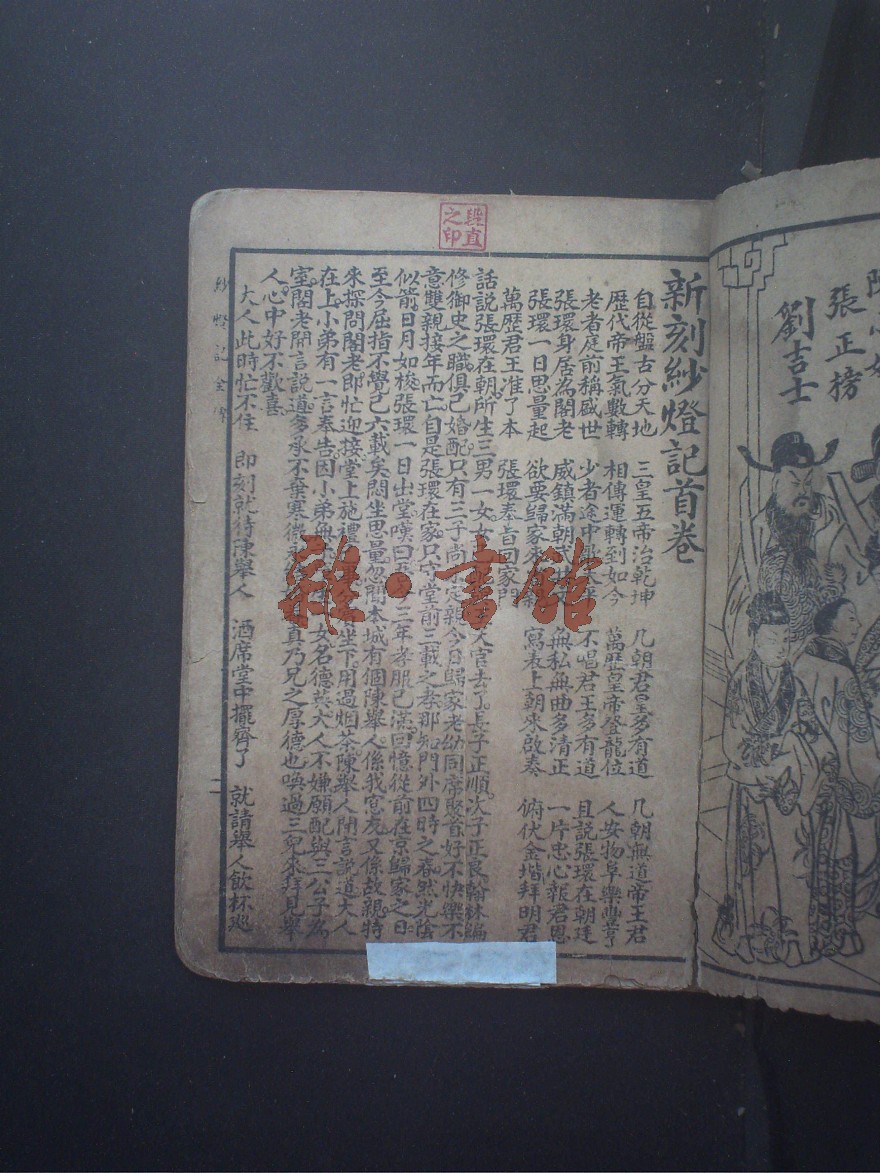 新刻紗燈記首卷
自從盤古分天地 三皇五帝治乾坤 几朝君皇多有道 几朝無道帝王君
歷代帝王氣數轉 相傳運轉到如今 萬歷皇帝登龍位 人安物阜樂豐
老者庭前稱盛世 少者途中 不唱君王多有道 且說張環在朝廷
張環身居為閣老 威鎮滿朝 無私無曲多清正 一片忠心報君恩
張環一日思量起 欲要歸家 寫表上朝來啟奏 俯伏金堦拜明君
萬歷君王准了本 張環奉旨回家門
話說張環在朝所生三男一女 人官去了長子正順次子正 翰林編
修御史之職俱已婚配只有三子尚 定親今日歸家老幼同席聚首好不快樂不
意雙親接年而亡自是張環在家只守堂前三載之孝那知門外四時之春然光陰
似箭日月如梭張環一日出堂嘆曰 三年孝服已滿回憶從前在京歸家之日
至今屈指不覺已六載矣悶坐思量忽聞本城有個陳舉人係我窓友又係故親特
來探問閣老即忙迎接堂上施禮 坐下用過烟茶陳舉人開言說道大人
在上小弟有一言奉告因小弟無 女名德英大人不嫌願配與三公子為
室閣老開言說道多承不棄寒微 真乃兄之厚德也喚過三兒來拜見舉
人心中好不歡喜
大人此時忙不住 即刻就待陳舉人 酒席堂中擺齊了 就請舉人飲杯巡
紗燈記全
二
段直之印
張正榜
劉吉士
雜·書館